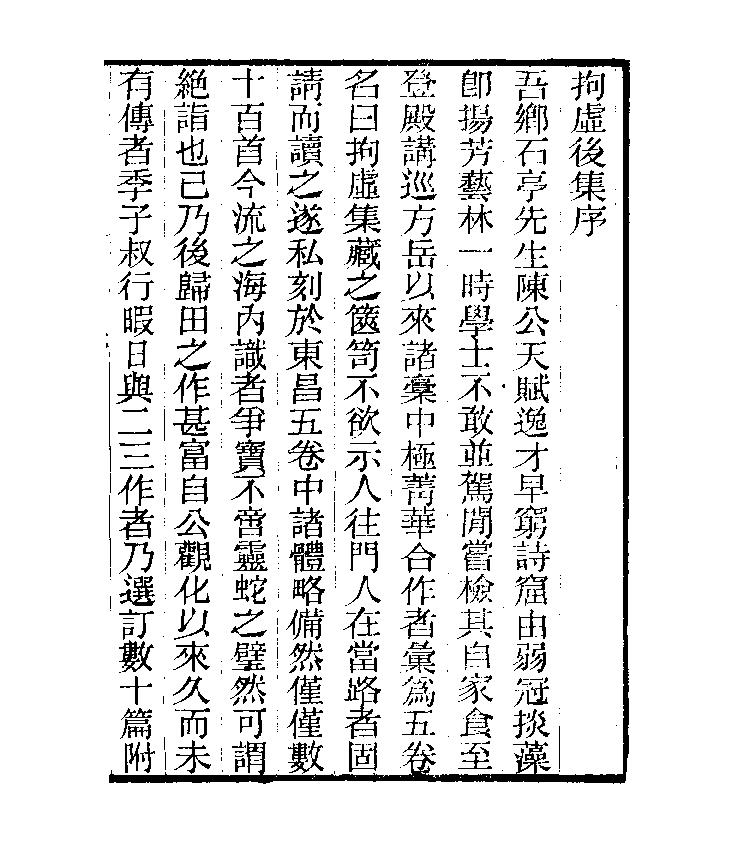 拘虛後集序
吾鄉石亭先生陳公天賦逸才早窮詩窟由弱冠掞藻
卽揚芳藝林一時學士不敢並駕閒嘗檢其自家食至
登殿講巡方岳以來諸稾中極菁華合作者彙爲五卷
名曰拘虛集藏之篋笥不欲示人往門人在當路者固
請而讀之遂私刻於東昌五卷中諸體略備然僅僅數
十百首今流之海內識者爭寶不啻靈蛇之璧然可謂
絕詣也已乃後歸田之作甚富自公觀化以來久而未
有傳者季子叔行暇日與二三作者乃選訂數十篇附